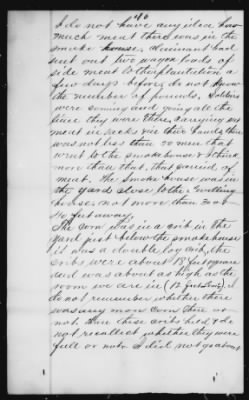 46
I do not have any idea how
much meat there was in the
smoke house, claimant had
sent out two wagon loads of
side meat to the plantation a
few days before, do not know
the number of pounds, soldiers
were coming and going all the
time they were there, carrying out
meat in sacks in their hands, there
was not less than 20 men that
went to the smokehouse I think
more than that, that carried off
meat. The smoke house was in
the yard close to the dwelling
house, not more than 30 or
40 feet away.
The corn was in a crib in the
yard just below the smokehouse
it was a double log crib, the
cribs were about 18 feet square
and was about as high as the
room we are in (12 feet) I
do not remember whether there
was any more corn there or
not than these cribs had, I do
not recollect whether they were
full or not I did not go about